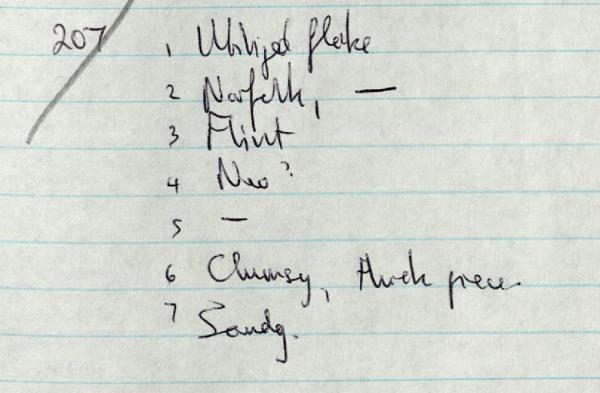 207 1 Utilized flake
2 Norfolk, —
3 Flint
4 Neo?
5 —
6 Clumsy, thick piece.
7 Sandg.